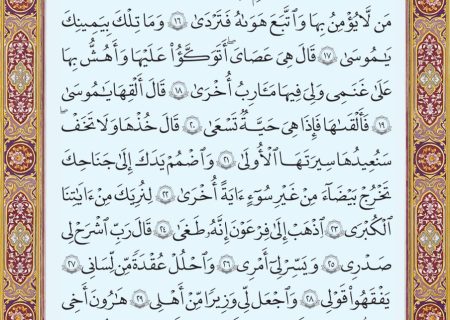 مَن لَّا يُؤْمِنُ بِهَا وَٱتَّبَعَ هَوَىٰهُ فَتَرْدَىٰ ١٦ وَمَا تِلْكَ بِيَمِينِكَ
يَٰمُوسَىٰ ١٧ قَالَ هِىَ عَصَاىَ أَتَوَكَّؤُا۟ عَلَيْهَا وَأَهُشُّ بِهَا
عَلَىٰ غَنَمِى وَلِىَ فِيهَا مَـَٔارِبُ أُخْرَىٰ ١٨ قَالَ أَلْقِهَا يَٰمُوسَىٰ
١٩ فَأَلْقَىٰهَا فَإِذَا هِىَ حَيَّةٌ تَسْعَىٰ ٢٠ قَالَ خُذْهَا وَلَا تَخَفْ ۖ
سَنُعِيدُهَا سِيرَتَهَا ٱلْأُولَىٰ ٢١ وَٱضْمُمْ يَدَكَ إِلَىٰ جَنَاحِكَ
تَخْرُجْ بَيْضَآءَ مِنْ غَيْرِ سُوٓءٍ ءَايَةً أُخْرَىٰ ٢٢ لِنُرِيَكَ مِنْ ءَايَٰتِنَا
ٱلْكُبْرَى ٢٣ ٱذْهَبْ إِلَىٰ فِرْعَوْنَ إِنَّهُۥ طَغَىٰ ٢٤ قَالَ رَبِّ ٱشْرَحْ لِى
صَدْرِى ٢٥ وَيَسِّرْ لِىٓ أَمْرِى ٢٦ وَٱحْلُلْ عُقْدَةً مِّن لِّسَانِى ٢٧
يَفْقَهُوا۟ قَوْلِى ٢٨ وَٱجْعَل لِّى وَزِيرًا مِّنْ أَهْلِى ٢٩ هَٰرُونَ أَخِى